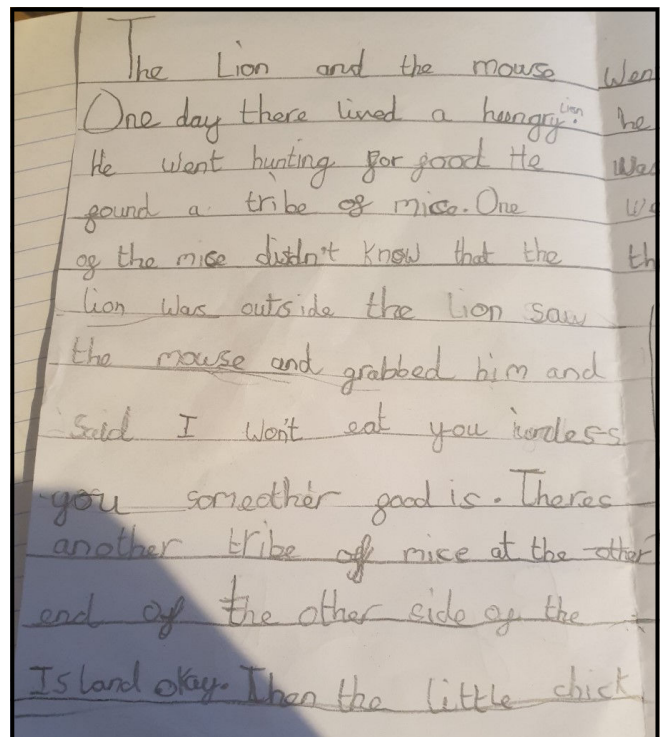 The Lion and the mouse
One day there lived a hungry lion.
He went hunting for good He
found a tribe of mice. One
of the mice didn't know that the
lion was outside the lion saw
the mouse and grabbed him and
said I won't eat you
you someother good is. Theres
another tribe of mice at the other
end of the other side of the
Island okay. Then the little chick
he
th